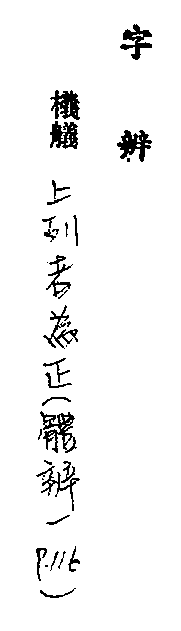 字辨
檥艤 上列者為正(體辨一 P.116)